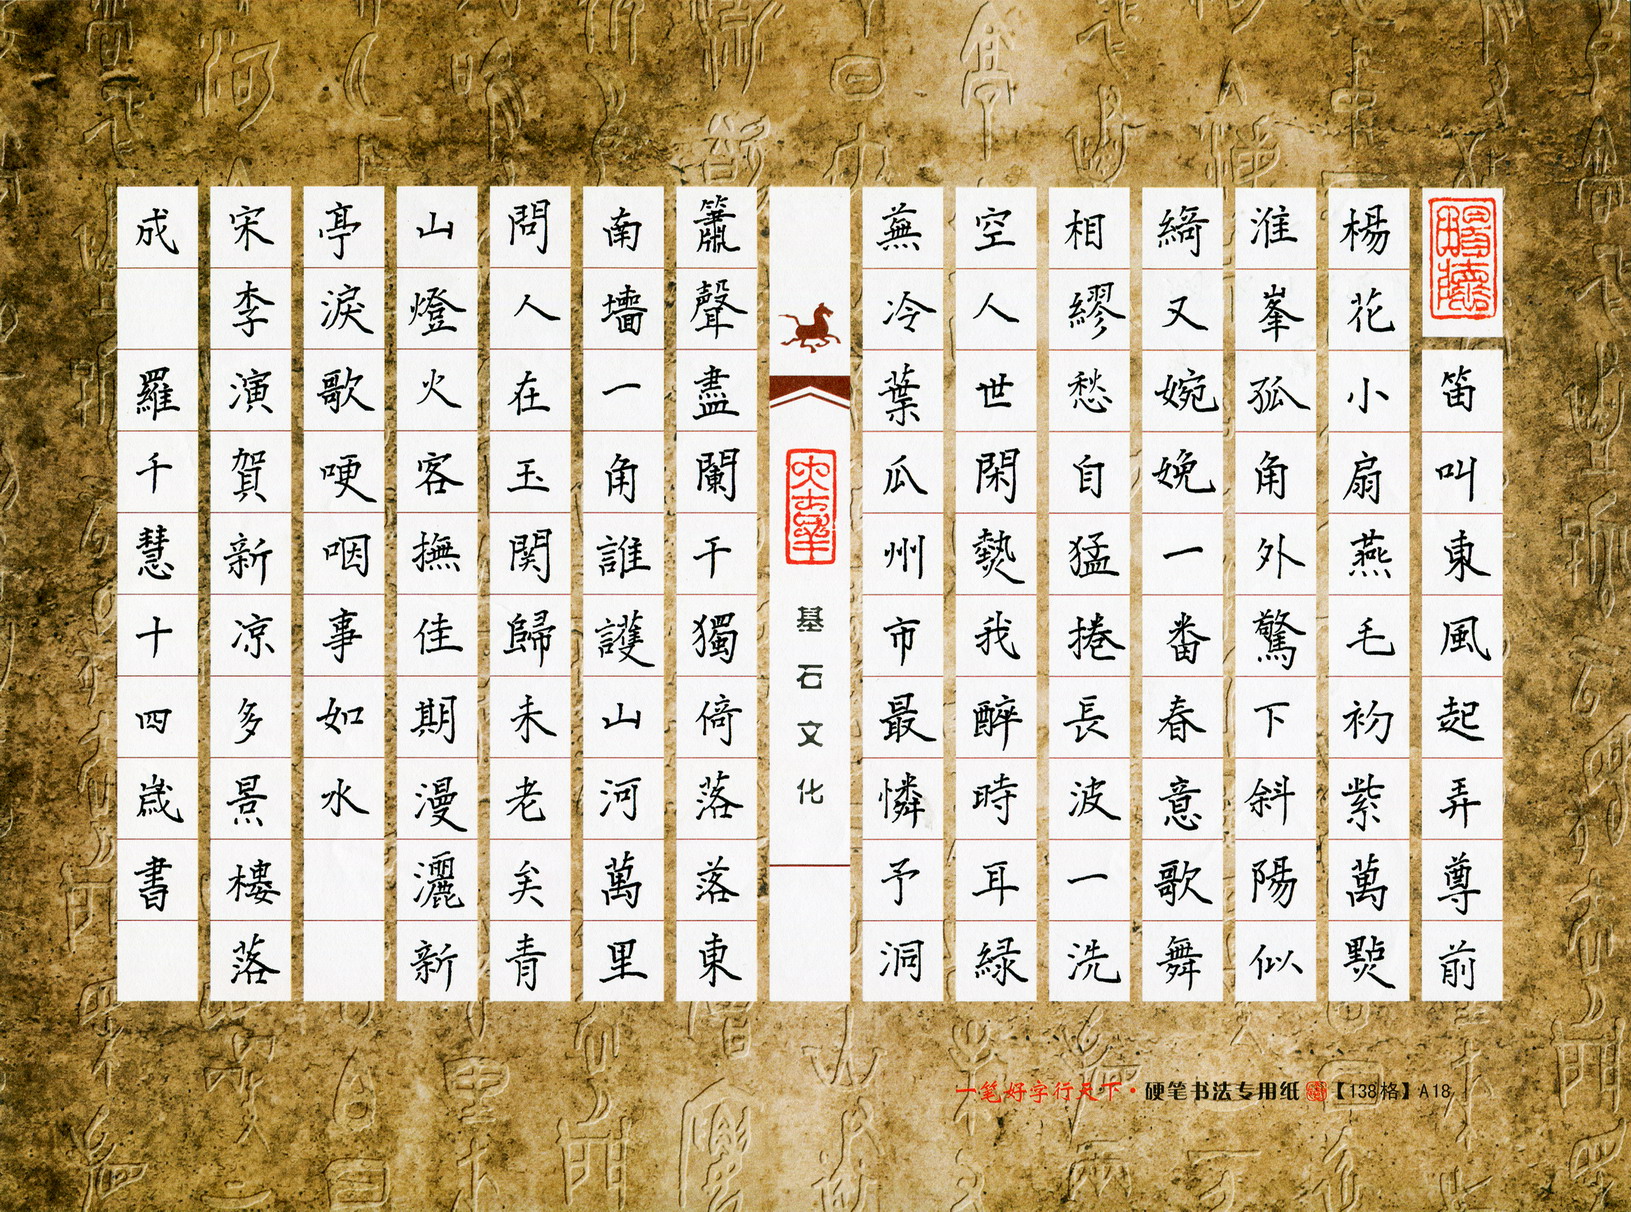 笛叫東風起弄尊前
楊花小扇燕毛初紫萬點
淮峯孤角外驚下斜陽似
綺又婉娩一番春意歌舞
相繆愁自猛捲長波一洗
空人世閑熱我醉時耳緑
蕪冷葉瓜州市最憐予洞
簫聲盡闌干獨倚落落東
南墻一角誰護山河萬里
問人在玉関歸未老矣青
山燈火客撫佳期漫灑新
亭淚歌哽咽事如水
宋李演賀新凉多景樓落
成 羅千慧十四歲書
基石文化
一笔好字行天下·硬笔书法专用纸【138格】A18